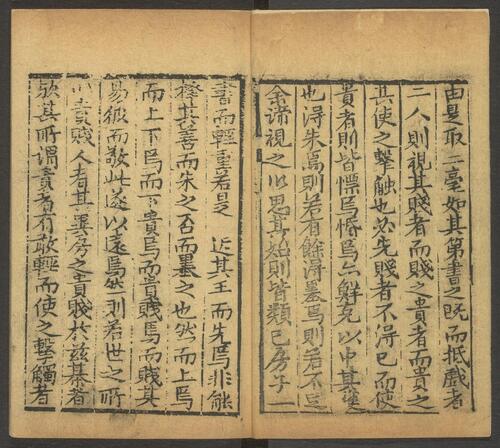 由是取二毫如其第書之既而抵戲者
二人則視其賤者而賤之貴者而貴之
其使之擊触也必先賤者不得已而使
貴者則皆慓焉惛焉亦鮮克以中其獲
也淂朱焉則若有餘淂墨焉則若不足
余諦視之以思其始則皆類也房子一
書而輕重若是 近其王而先焉非能
擇其善而朱之否而墨之也然而上焉
而上下焉而下貴焉而貴賤焉而賤其
易彼而敬此遂以遠焉然則若世之所
以貴賤人者其異房之貴賤於茲棊者
歟其所謂貴者有敢輕而使之擊觸者